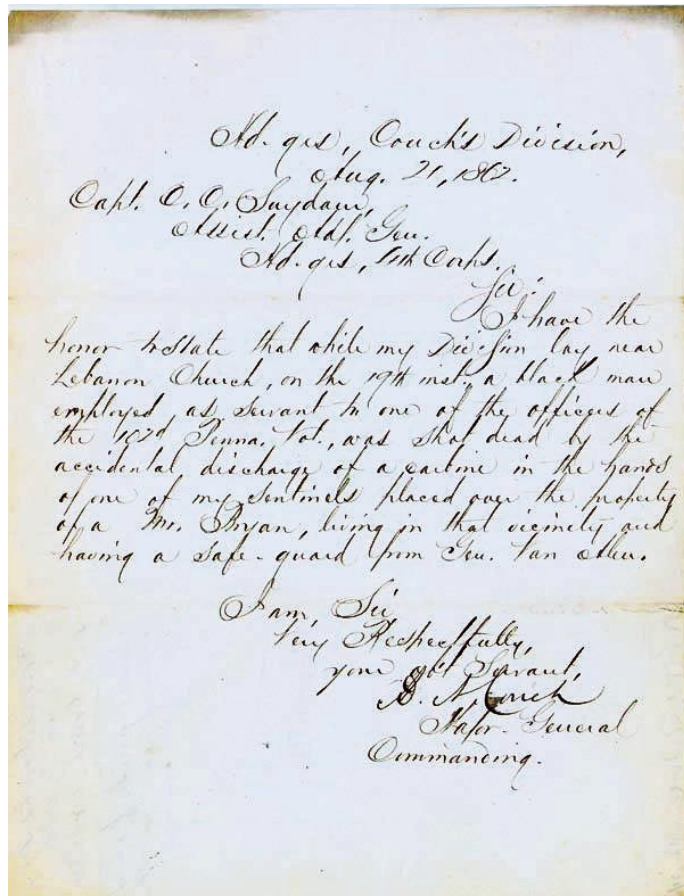 Hd. qrs, Couch's Division,
Aug. 21, 1862.
Capt. C. C. Suydam,
Assist. Adj. Gen.
Hd. qrs, 4th Corps.
Sir:
I have the
honor to state that while my Division lay near
Lebanon Church, on the 19th inst., a black man
employed as servant to one of the officers of
the 102d Penna. Vol., was shot dead by the
accidental discharge of a carbine in the hands
of one of my Sentinels placed over the property
of a Mr. Bryan, living in that vicinity and
having a safe-guard from Gen. Van Alen.
I am, Sir
Very Respectfully,
your obt Servant,
D. N. Couch
Major General
Commanding.